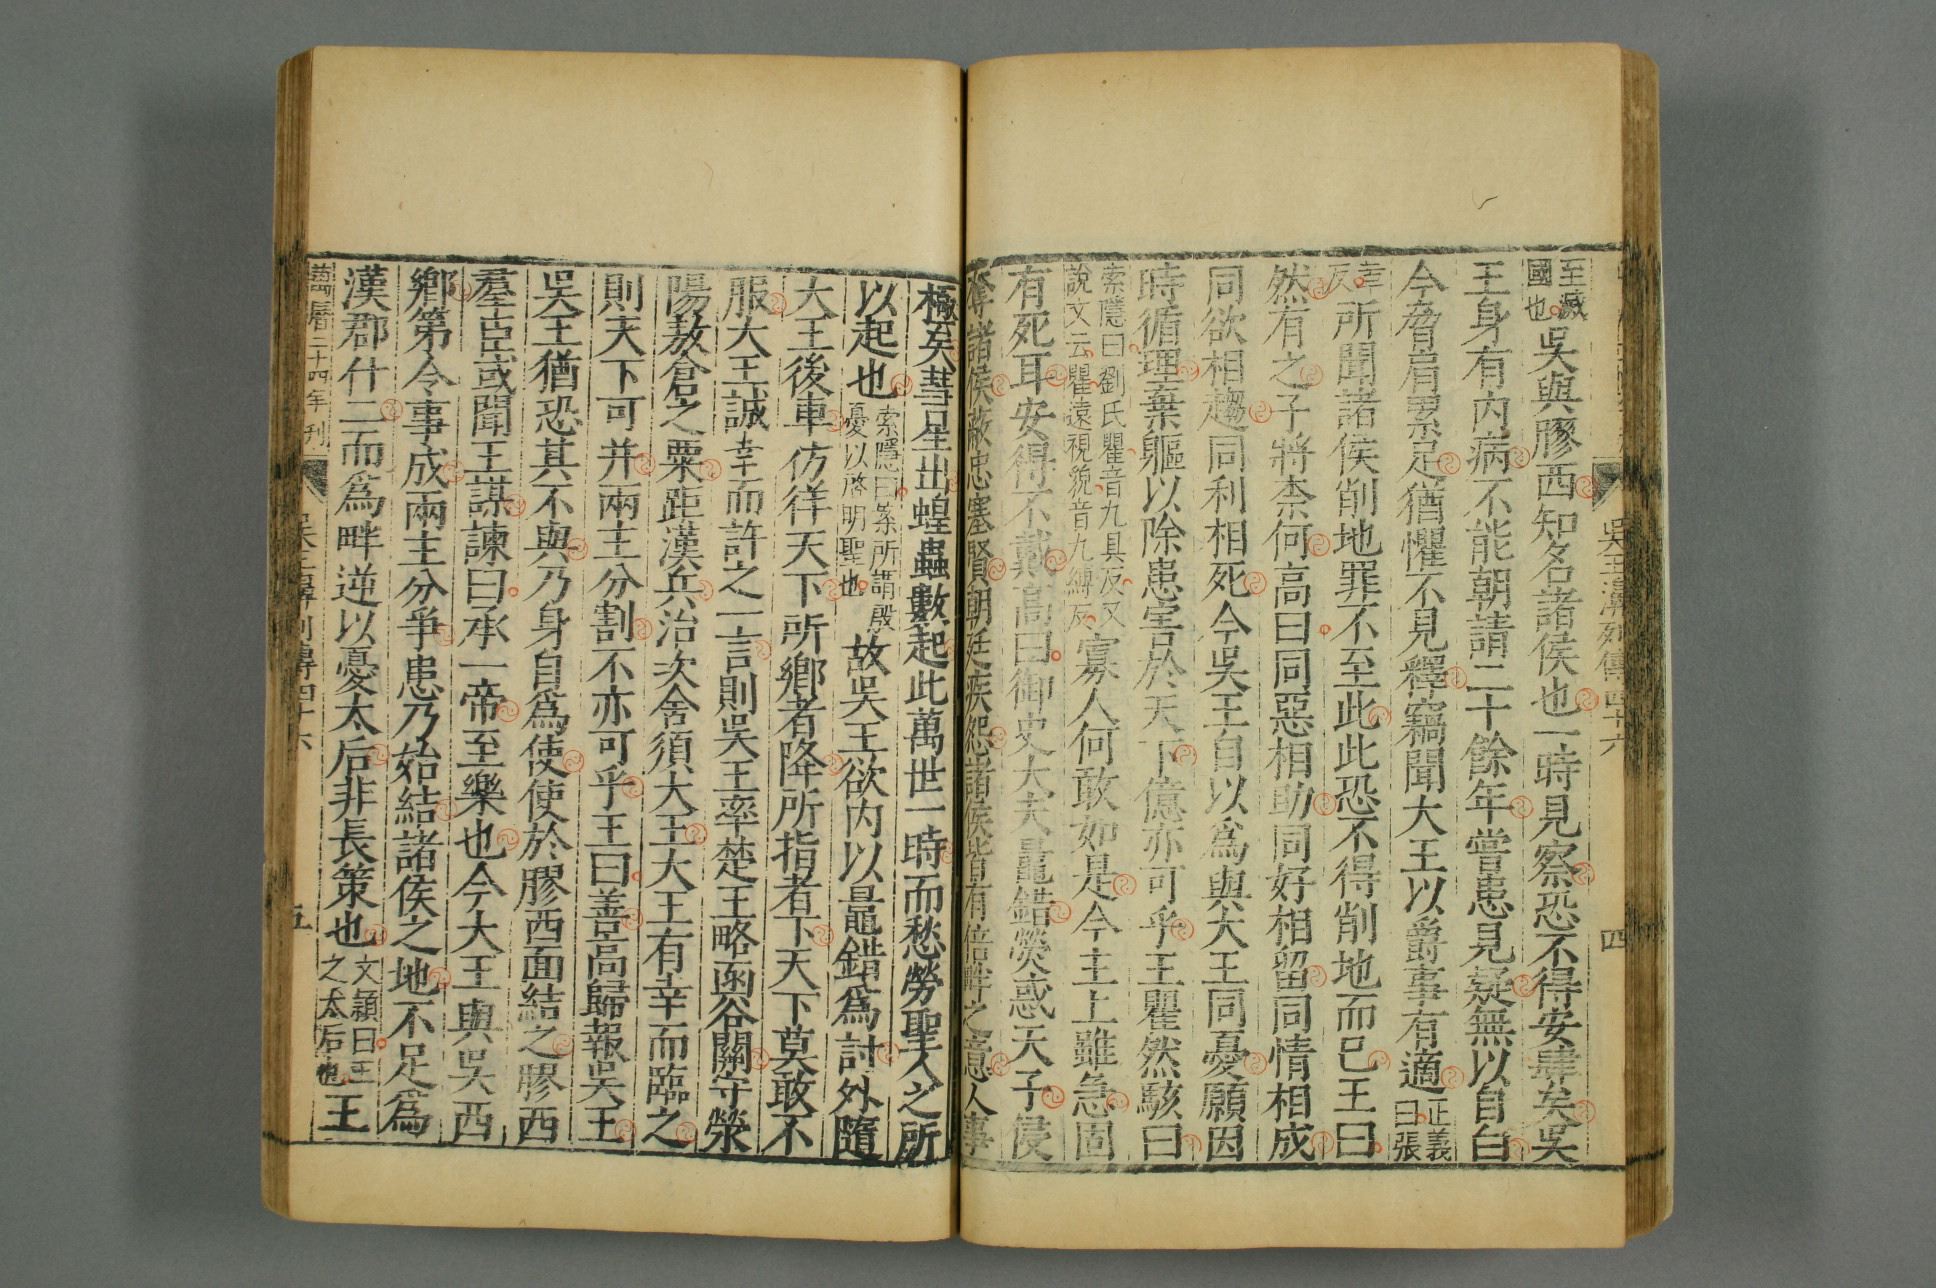 至滅
國也 吳與膠西知名諸侯也一時見察恐不得安肆矣吳
王身有內病不能朝請二十餘年嘗患見疑無以自白
今脅肩累足猶懼不見釋竊聞大王以爵事有適 正義
曰張
幸
反 所聞諸侯削地罪不至此此恐不得削地而已王曰
然有之子將柰何高曰同惡相助同好相留同情相成
同欲相趨同利相死今吳王自以爲與大王同憂願因
時循理棄軀以除患害於天下億亦可乎王瞿然駭曰
索隱曰劉氏瞿音九具反又
說文云瞿遠視貌音九縛反 寡人何敢如是今主上雖急固
有死耳安得不戴高曰御史大夫鼂錯熒惑天子侵
奪諸侯蔽忠塞賢朝廷疾怨諸侯皆有倍畔之意人事
極矣彗星出蝗蟲數起此萬世一時而愁勞聖人之所
以起也 索隱曰案所謂殷
憂以啓明聖也 故吳王欲內以鼂錯爲討外隨
大王後車彷徉天下所鄉者降所指者下天下莫敢不
服大王誠幸而許之一言則吳王率楚王略函谷關守滎
陽敖倉之粟距漢兵治次舍須大王大王有幸而臨之
則天下可并兩主分割不亦可乎王曰善高歸報吳王
吳王猶恐其不與乃身自爲使使於膠西面結之膠西
羣臣或聞王謀諫曰承一帝至樂也今大王與吳西
鄉第令事成兩主分爭患乃始結諸侯之地不足爲
漢郡什二而爲畔逆以憂太后非長策也 文穎曰王
之太后也 王
萬曆二十四年刊
吳王濞列傳四十六
五
吳王濞列傳四十六
四